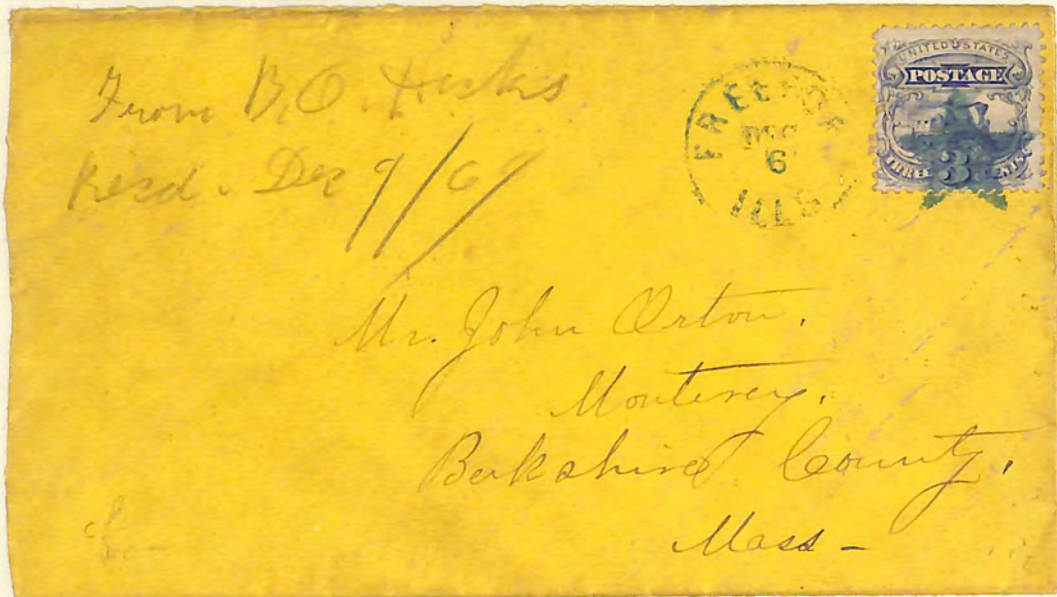 From B. O. Hicks
Recd. Dec 9/69
FREEPORT
DEC
6
ILLS
UNITED STATES
POSTAGE
THREE 3 CENTS
Mr. John Orton.
Monterey.
Berkshire County.
Mass -